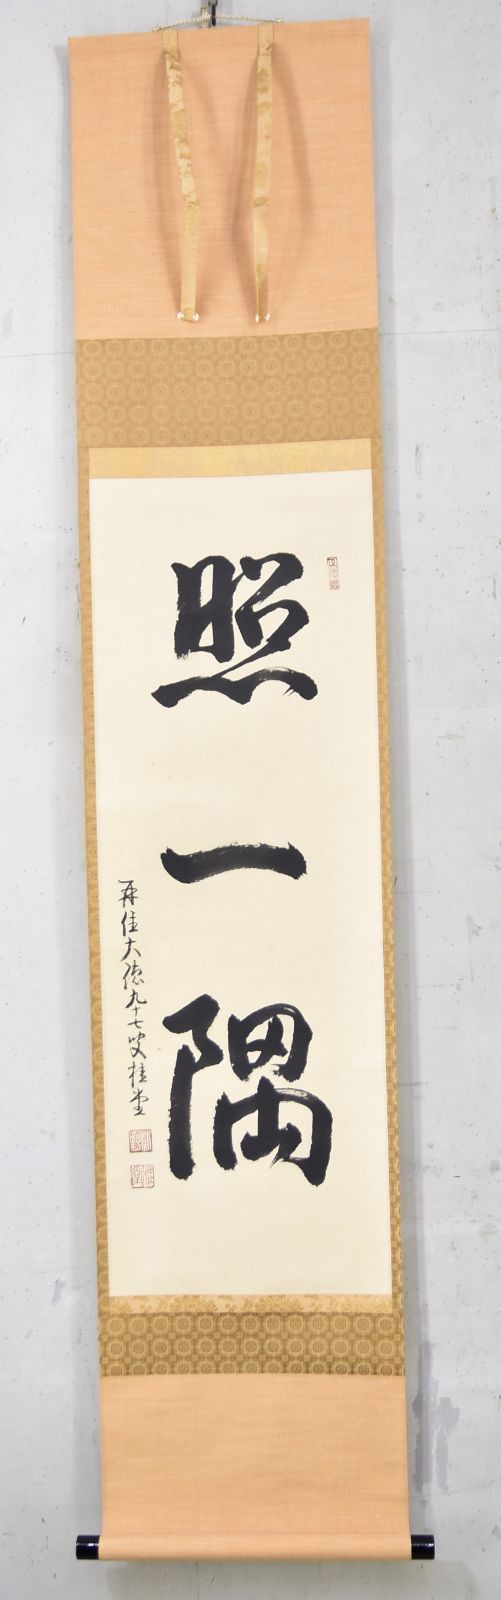 照一隅
再住大徳九十七叟桂堂